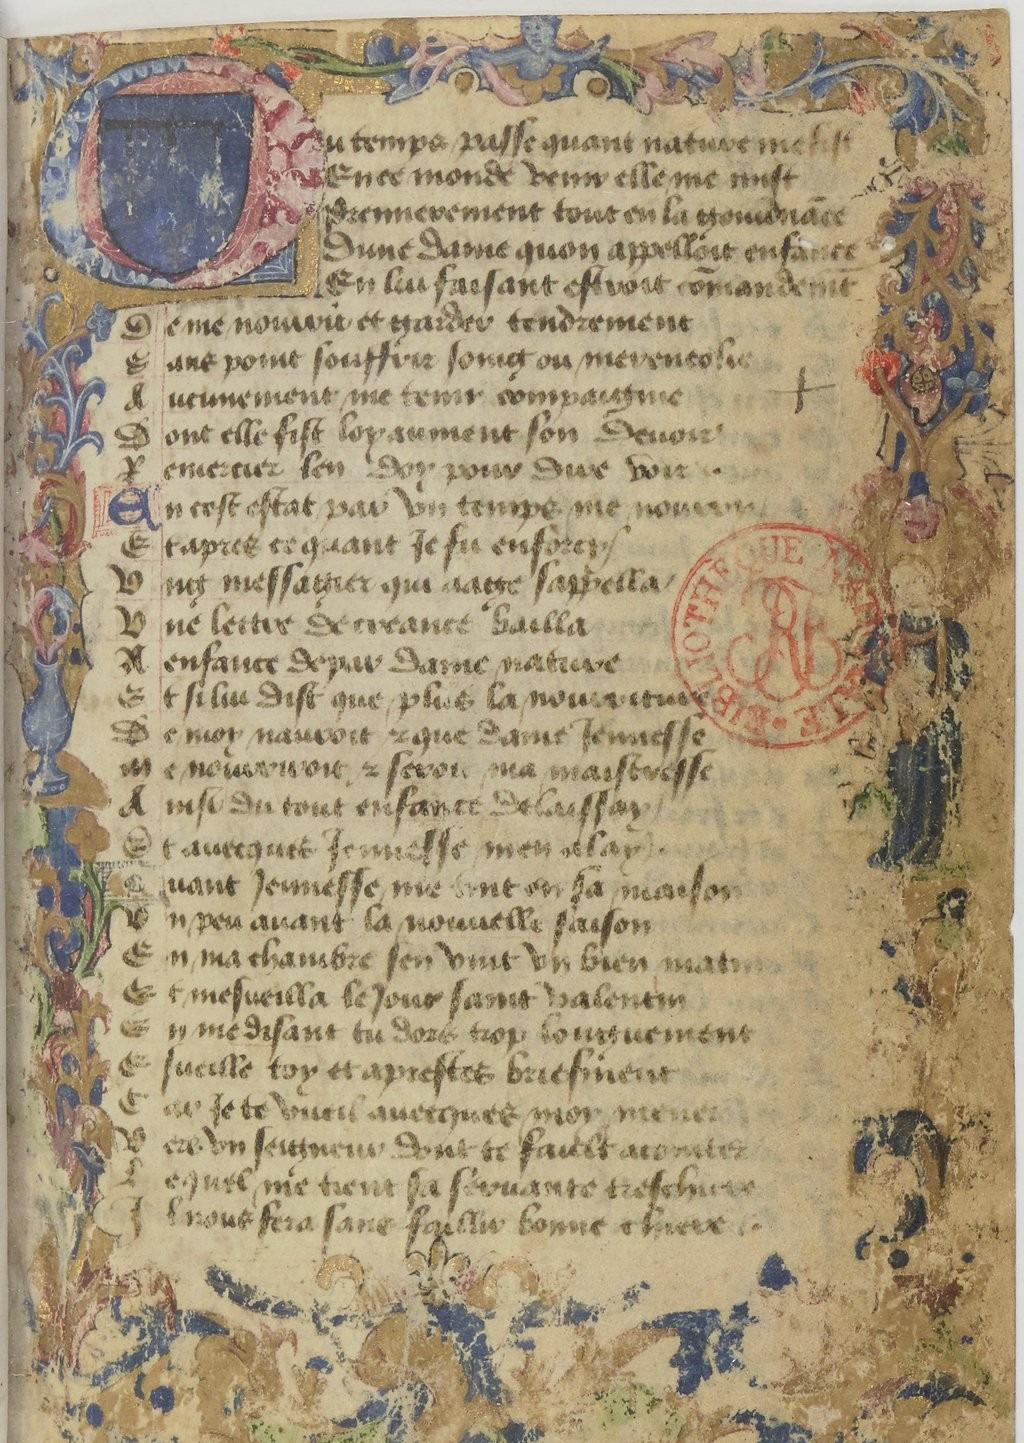 Ou temps passe quant nature me fist
En ce monde venir elle me mist
Premierement tout en la gouvernãce
Dune dame quon appelloit enfance
En lui faisant estroit cõmandemẽt
De me nourrir et garder tendrement
Sans point souffrir soing ou merencolie
Aucunement me tenir compaignie
Dont elle fist loyaument son devoir
Remercier len doy pour dire voir
En cest estat par un temps me nourry
Et apres ce quant Je fu enforcy
Ung messagier qui aage sappella
Une lettre de creance bailla
A enfance depar dame nature
Et si lui dist que plus la nourriture
De moy nauroit & que dame Jennesse
Me nourriroit & seroit ma maistresse
Ainsi du tout enfance delaissay
Et avecques Jennesse men alay
Quant Jennesse me tint en sa maison
Un peu avant la nouvelle saison
En ma chambre sen vint un bien matin
Et mesveilla le Jour saint valentin
En me disant tu dors trop longuement
Esveille toy et aprestes briefment
Car Je te vueil avecques moy mener
Vers un seigneur dont te fault acointer
Lequel me tient sa servante treschiere
Il nous fera sans faillir bonne chiere
BIBLIOTHEQUE NATIONALE